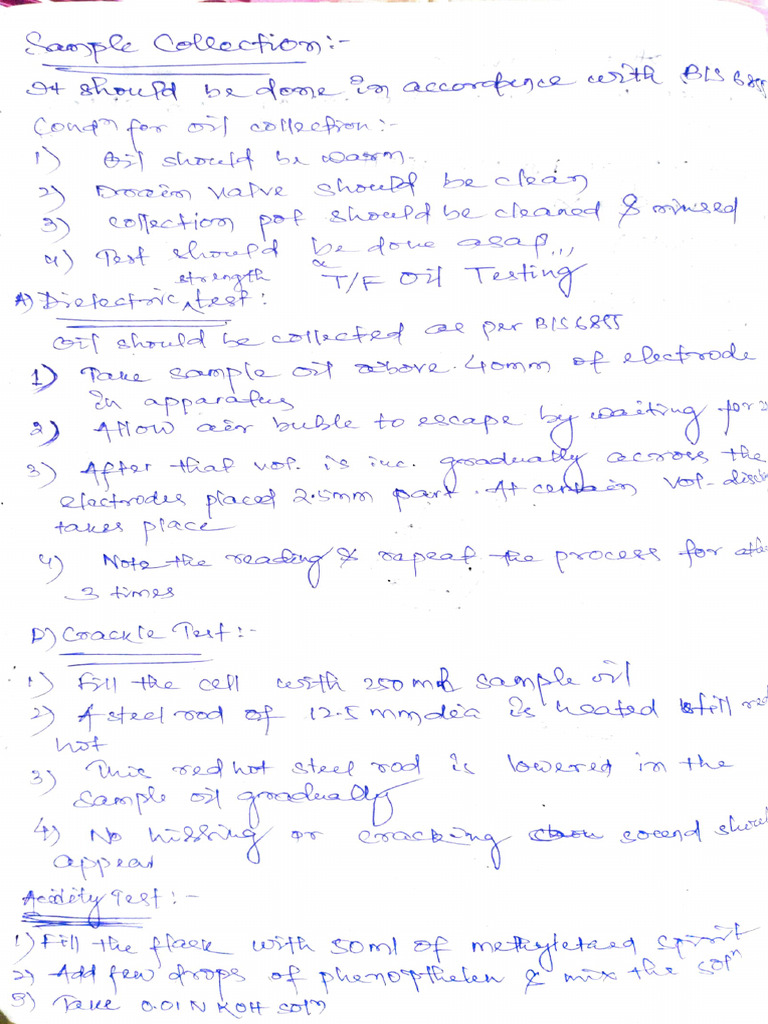 Sample Collection:-
It should be done in accordence with BIS 6855
Condn for oil collection:-
1) Oil should be warm.
2) Drain valve should be clean
3) collection pot should be cleaned & rinsed
4) Test should be done asap...
T/F Oil Testing
A) Dielectric strength test:
Oil should be collected as per BIS 6855
1) Take sample oil above 40mm of electrode
in apparatus
2) Allow air buble to escape by waiting for
3) After that vol. is inc. gradually across the
electrodes placed 2.5mm part. At certain vol. disc
takes place
4) Note the reading & repeat the process for
3 times
D) Crackle Test:-
1) Fill the cell with 250 ml sample oil
2) A steel rod of 12.5 mm dia is heated till red
hot
3) This red hot steel rod is lowered in the
sample oil gradually
4) No hissing or cracking sound shou
appear
Acidity Test:-
1) Fill the flask with 50ml of methyletaed spirit
2) Add few drops of phenopthelen & mix the soln
3) Take 0.01 N KOH soln